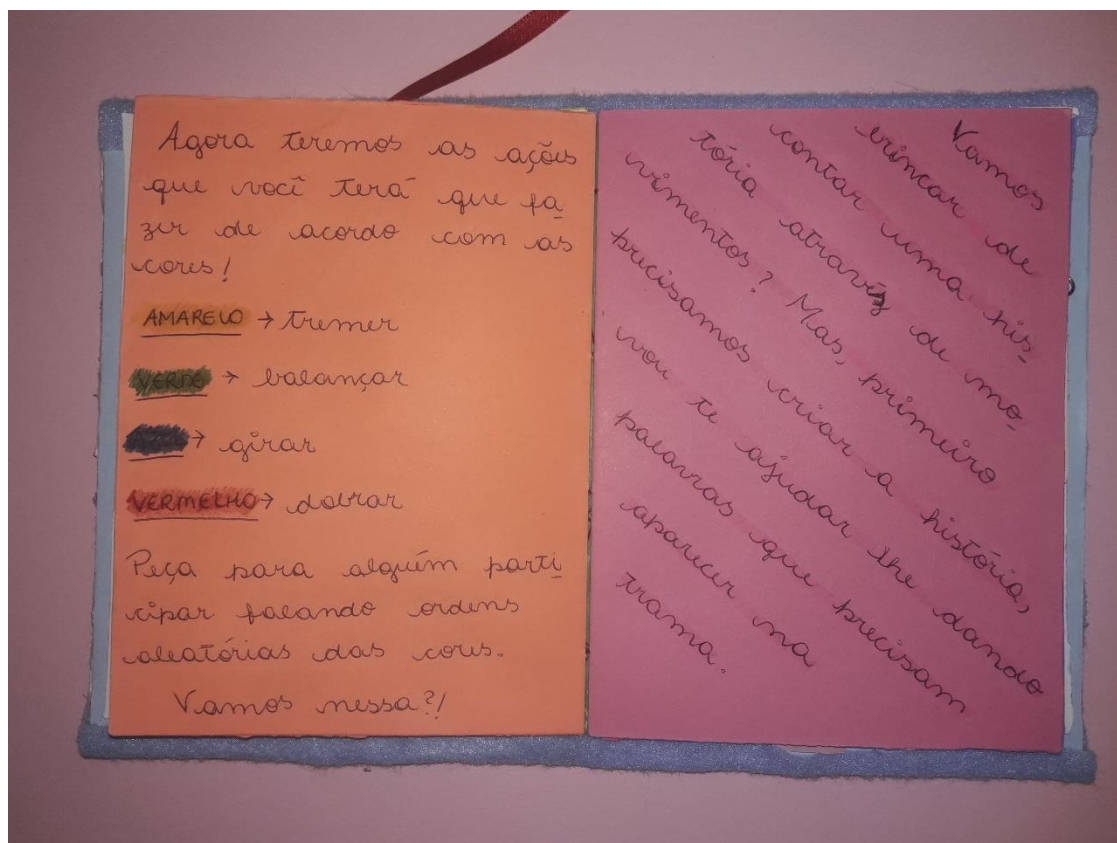 Agora teremos as ações
que você terá que fa
zer de acordo com as
cores!
AMARELO → tremer
VERDE → balançar
→ girar
VERMELHO → dobrar
Peça para alguém parti
cipar falando ordens
aleatórias das cores.
Vamos nessa?!
Vamos
brincar de
contar uma his
tória através de mo
vimentos? Mas, primeiro
precisamos criar a história,
vou te ajudar lhe dando
palavras que precisam
aparecer na
trama.